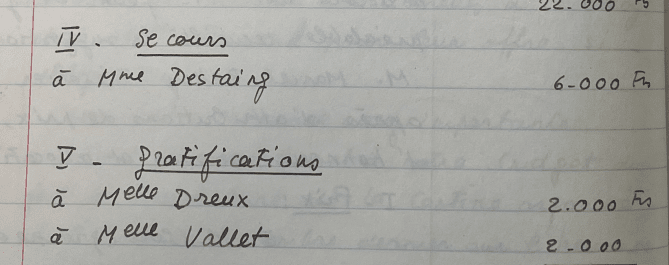 22.000 Frs
IV. Secours
à Mme Destaing 6.000 Frs
V - gratifications
à Melle Dreux 2.000 Frs
à Melle Vallet 2.000